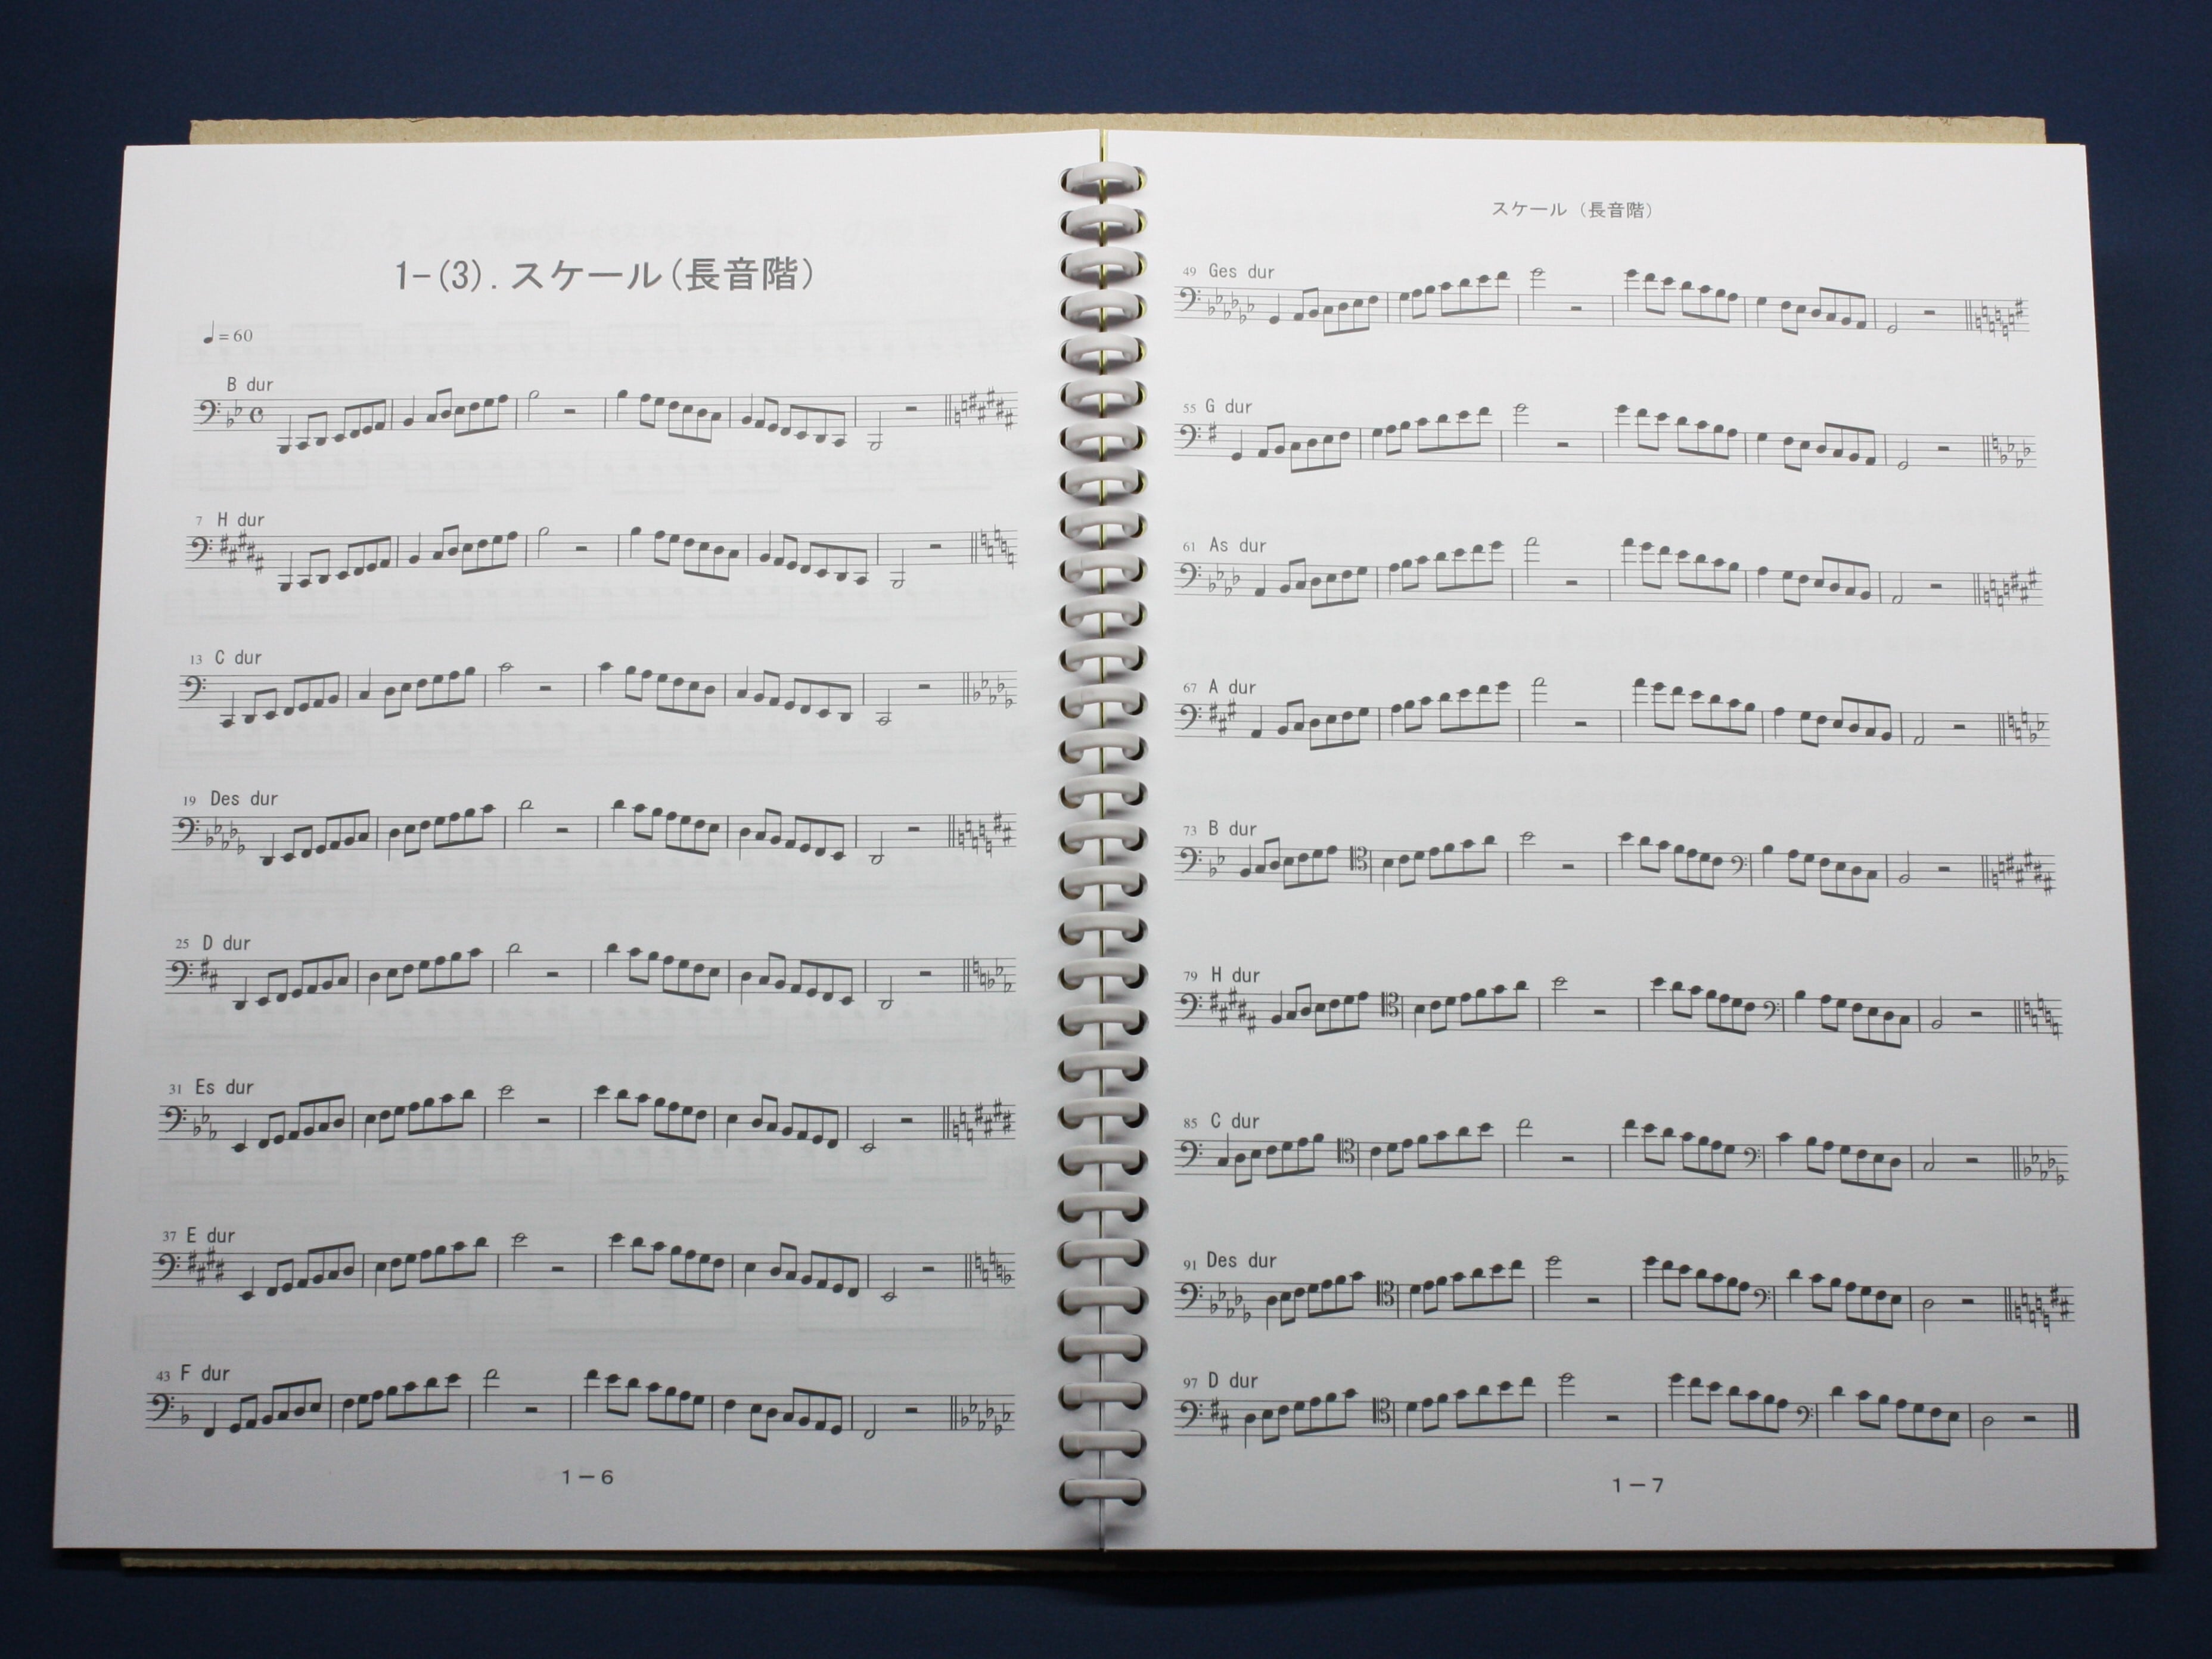 1-(3).スケール(長音階)
♩=60
B dur
7 H dur
13 C dur
19 Des dur
25 D dur
31 Es dur
37 E dur
43 F dur
1－6
スケール（長音階）
49 Ges dur
55 G dur
61 As dur
67 A dur
73 B dur
79 H dur
85 C dur
91 Des dur
97 D dur
1－7